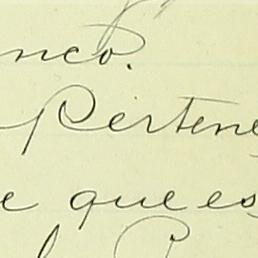 nco.
Pertene
e que es